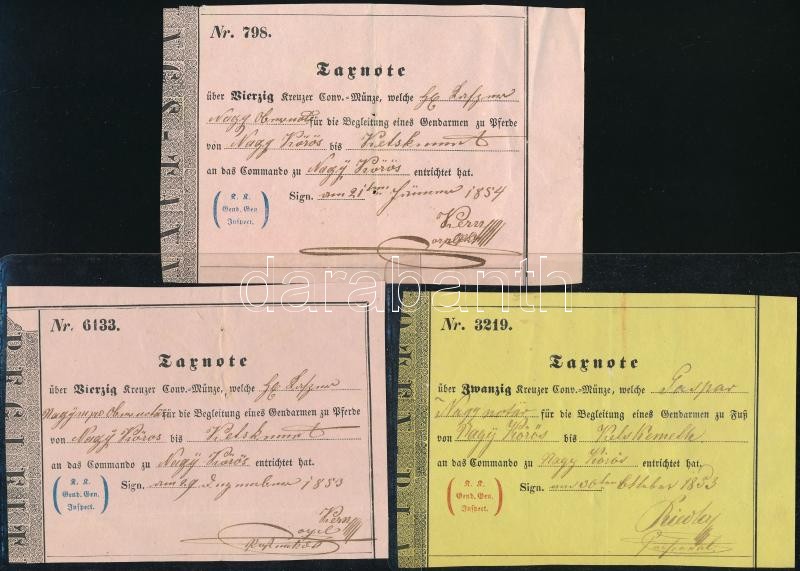 Nr. 798.
Taxnote
über Vierzig Kreuzer Conv.-Münze, welche
Nagy für die Begleitung eines Gendarmen zu Pferde
von Nagy Körös bis Ketskemét
an das Commando zu Nagy Körös entrichtet hat.
Sign. am 21 Jänner 1854
K. K.
Gend. Gen.
Inspect.
Kern
Nr. 6133.
Taxnote
über Vierzig Kreuzer Conv.-Münze, welche
für die Begleitung eines Gendarmen zu Pferde
von Nagy Körös bis Ketskemét
an das Commando zu Nagy Körös entrichtet hat.
Sign. am 29 Dezember 1853
K. K.
Gend. Gen.
Inspect.
Kern
Nr. 3219.
Taxnote
über Zwanzig Kreuzer Conv.-Münze, welche Gaspar
Nagy notär für die Begleitung eines Gendarmen zu Fuß
von Nagy Körös bis Ketskemeth
an das Commando zu Nagy Körös entrichtet hat.
Sign. am 30 Oktober 1853
K. K.
Gend. Gen.
Inspect.
darabanth